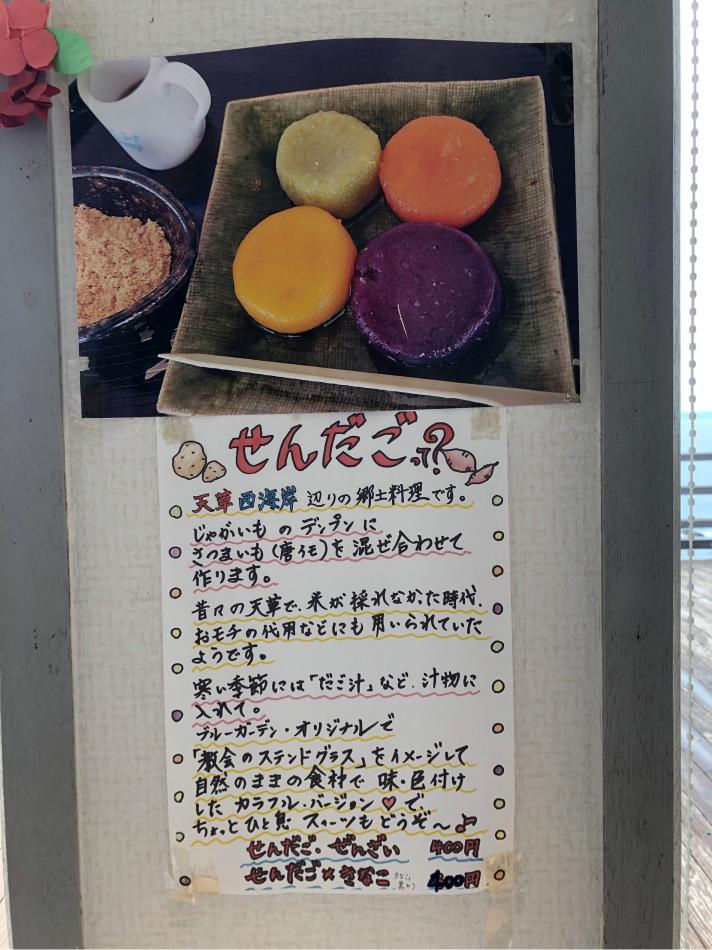 せんだごって?
天草西海岸 辺りの郷土料理です。
じゃがいも の デンプン に
さつまいも(唐イモ)を 混ぜ合わせて
作ります。
昔々の天草で、米が採れなかった時代、
おモチの代用などにも 用いられていた
ようです。
寒い季節には「だご汁」など、汁物に
入れて。
ブルーガーデン・オリジナルで
「教会のステンドグラス」をイメージして
自然のままの食材で 味・色付け
した カラフル・バージョン♥で、
ちょっとひと息 スイーツもどうぞ〜♪
せんだご・ぜんざい 400円
せんだご×きなこ きなこ 黒みつ 400円